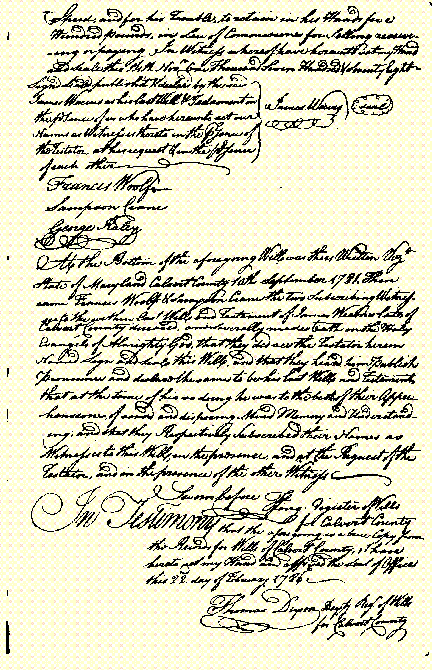 Speed, and for his Trouble, to retain in his Hands for a
Hundred pounds, in Lieu of Commissions for Selling receiv-
ing or paying. In Witness whereof I have hereunto set my Hand
and Seale this 14th Nov. One Thousand Seven Hundred & Seventy Eight
Sign Seald publishd & declar'd by the said
James Weems as his last Will & Testament in
the p'sence of us who have hereunto set our
Names as Witnesses thereto in the p'sence of
the Testator at his request & in the p'sence
of each other
James Weems Seal
Francis Woolf
Sampson Crane
George Raley
At the Bottom of the aforegoing Will, was thus Written Viz.t
State of Maryland Calvert County 18th September 1781. Then
came Francis Woolf & Sampson Crane the two Subscribing Witness-
es to the within Last Will and Testament of James Weems late of
Calvert County deceased, and severally made Oath on the Holy
Evangels of Almighty God, that they did see the Testator herein
Named Sign and Seale this Will, and that they heard him Publish
Pronounce and declare the same to be his last Will and Testament
that at the time of his so doing he was to the best of their Appre
hensions, of sound and disposing Mind Memory and Understand-
ing; and that they Respectively Subscribed their Names as
Witnesses to this Will, in the presence, and at the Request of the
Testator, and in the presence of the other Witness
Sworn before Register of Wills
for Calvert County
In Testimony that the aforegoing is a true Copy from
the Records for Wills of Calvert County, I have
hereto set my Hand and affixed the Seal of Office
this 22 day of February 1786
Thomas Dixon Depty Regr of Wills
for Calvert County